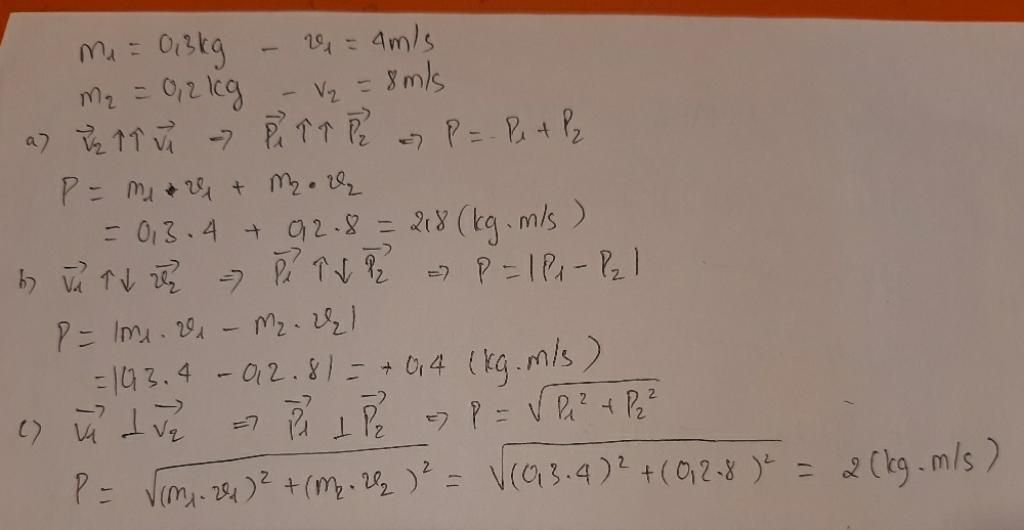 m₁ = 0,3kg – v₁ = 4m/s
m₂ = 0,2kg – v₂ = 8m/s
a) v₂⃗ ↑↑ v₁⃗ ⇒ P₁⃗ ↑↑ P₂⃗ ⇒ P = P₁ + P₂
P = m₁ • v₁ + m₂ • v₂
= 0,3 . 4 + 0,2 . 8 = 2,8 (kg.m/s)
b) v₁⃗ ↑↓ v₂⃗ ⇒ P₁⃗ ↑↓ P₂⃗ ⇒ P = |P₁ – P₂|
P = |m₁ . v₁ – m₂ . v₂|
= |0,3 . 4 – 0,2 . 8| = + 0,4 (kg.m/s)
c) v₁⃗ ⊥ v₂⃗ ⇒ P₁⃗ ⊥ P₂⃗ ⇒ P = √(P₁² + P₂²)
P = √((m₁ . v₁)² + (m₂ . v₂)²) = √((0,3 . 4)² + (0,2 . 8)²) = 2 (kg.m/s)